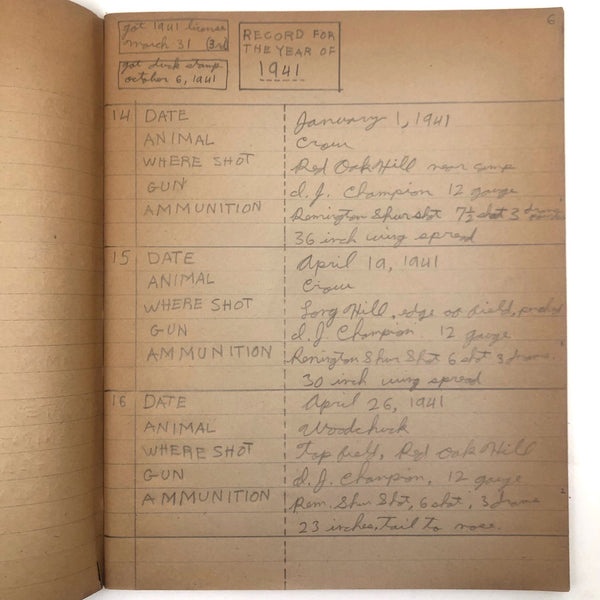 got 1941 license
march 31 (3rd)
got duck stamp
october 6, 1941
RECORD FOR
THE YEAR OF
1941
6
14 DATE January 1, 1941
ANIMAL Crow
WHERE SHOT Red Oak Hill near camp
GUN d. J. Champion 12 gauge
AMMUNITION Remington Shur Shot 7½ shot 3 drams
36 inch wing spread
15 DATE April 19, 1941
ANIMAL Crow
WHERE SHOT Long Hill, edge of field,
GUN d. J. Champion 12 gauge
AMMUNITION Remington Shur Shot 6 shot 3 drams
30 inch wing spread
16 DATE April 26, 1941
ANIMAL Woodchuck
WHERE SHOT Top field, Red Oak Hill
GUN d. J. Champion, 12 gauge
AMMUNITION Rem. Shur Shot, 6 shot, 3 drams
23 inches, tail to nose.